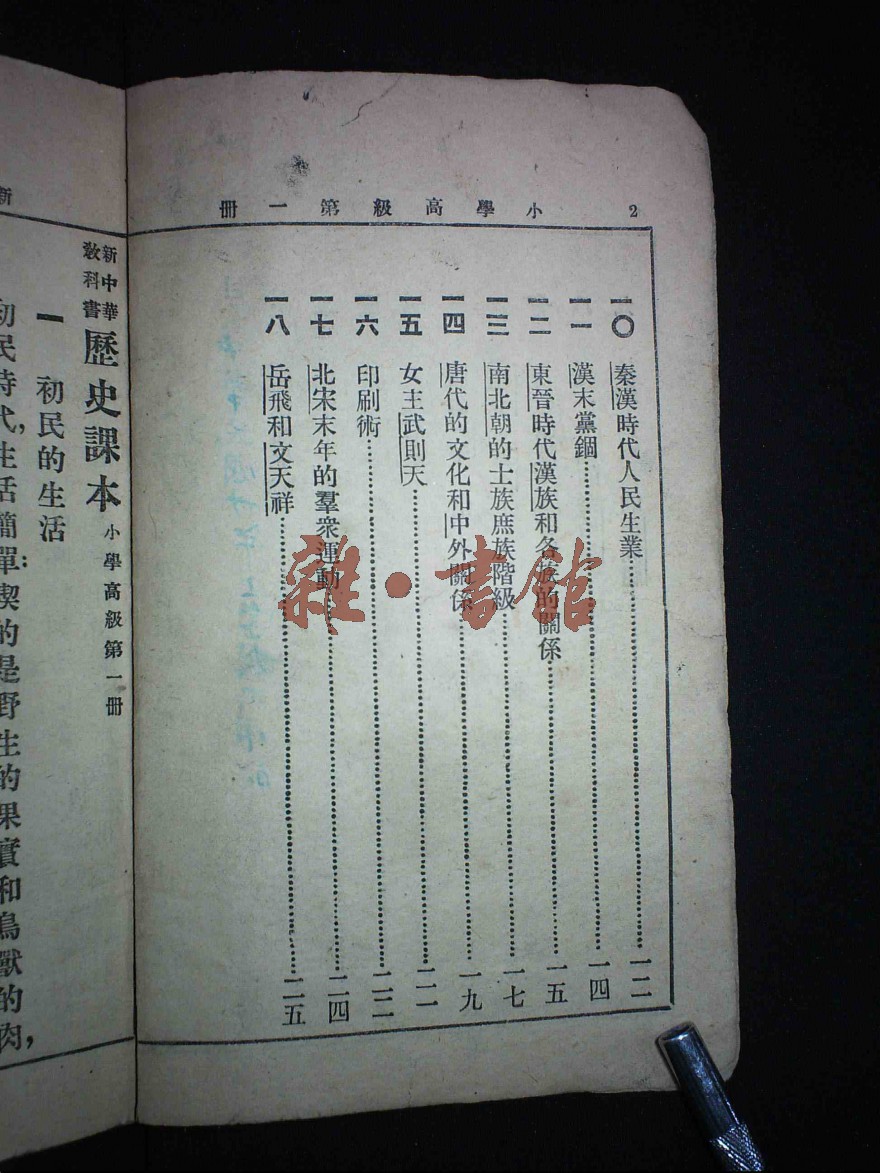 2 小學高級第一册
一〇 秦漢時代人民生業……一二
一一 漢末黨錮……一四
一二 東晉時代漢族和各族的關係……一五
一三 南北朝的士族庶族階級……一七
一四 唐代的文化和中外關係……一九
一五 女主武則天……二一
一六 印刷術……二二
一七 北宋末年的羣衆運動……二四
一八 岳飛和文天祥……二五
雜·書館
新
新中華教科書 歷史課本 小學高級第一册
一 初民的生活
初民時代,生活簡單:喫的是野生的果實和鳥獸的肉,